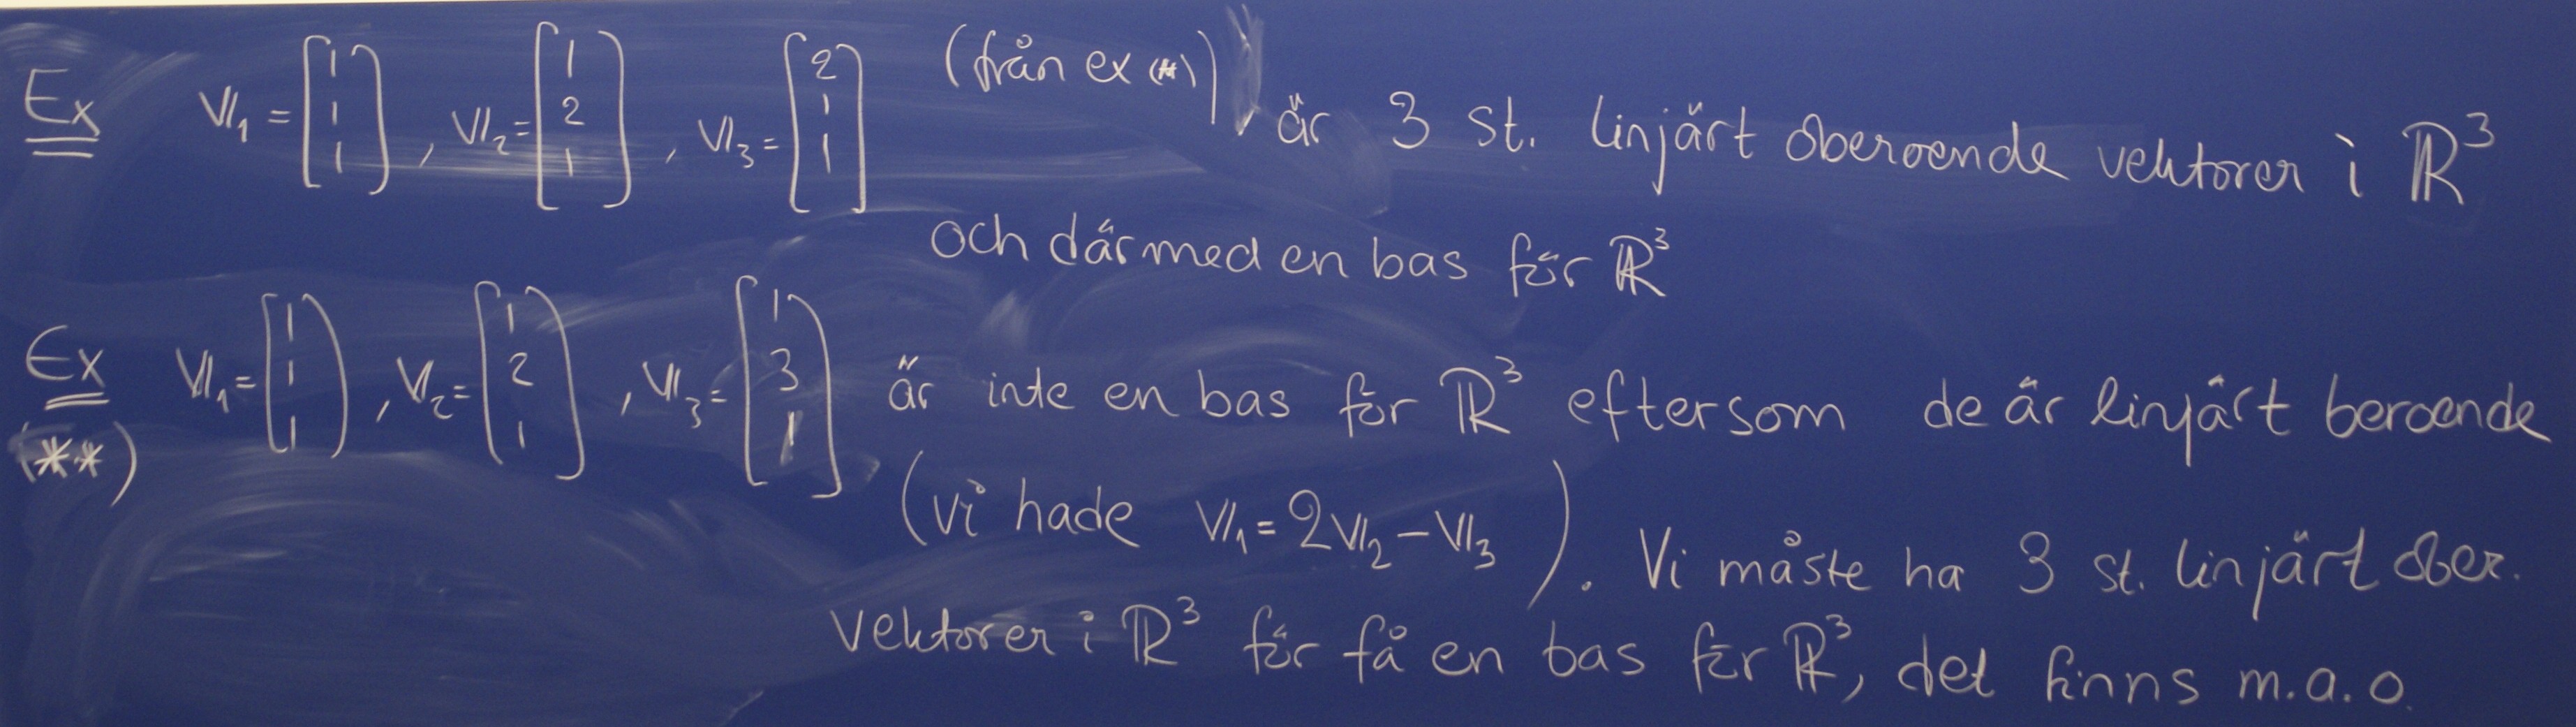 Ex v₁ = [1 1 1], v₂ = [1 2 1], v₃ = [2 1 1] (från ex (*)), är 3 st. linjärt oberoende vektorer i ℝ³
och därmed en bas för ℝ³
Ex v₁ = [1 1 1], v₂ = [1 2 1], v₃ = [1 3 1] är inte en bas för ℝ³ eftersom de är linjärt beroende
(**) (vi hade v₁ = 2v₂ − v₃). Vi måste ha 3 st. linjärt ober.
vektorer i ℝ³ för få en bas för ℝ³, det finns m.a.o.